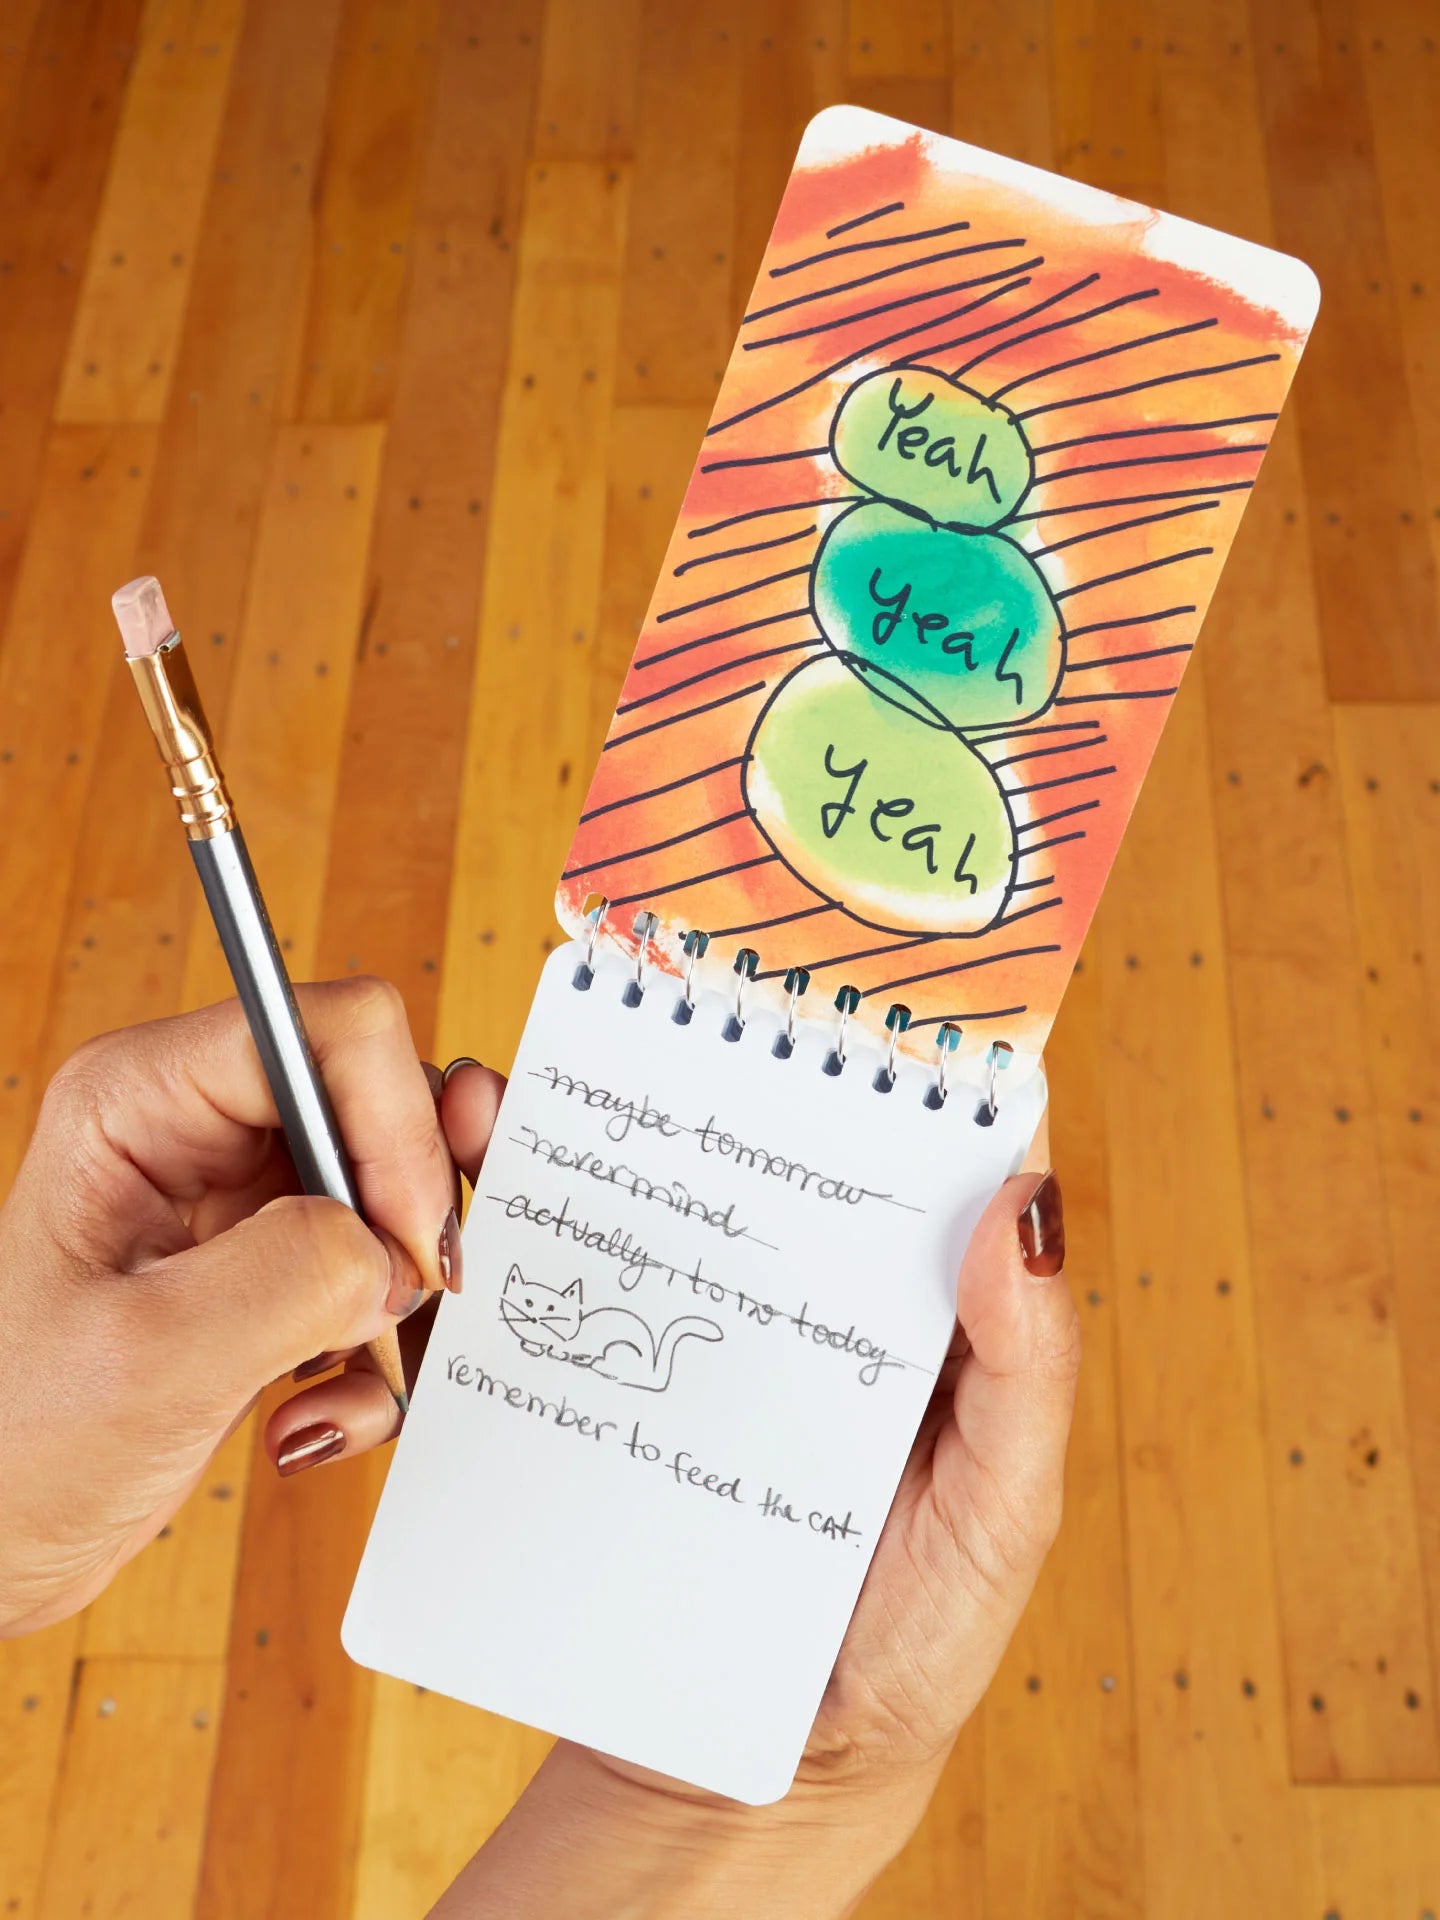 Yeah
yeah
yeah
maybe tomorrow
nevermind
actually, today
remember to feed the CAT.